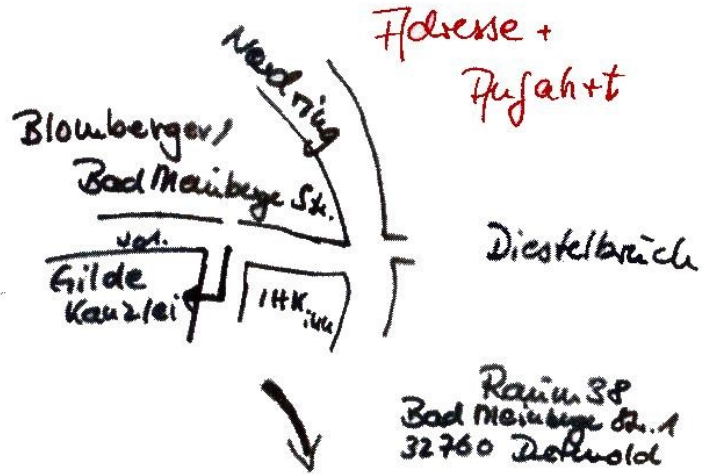 Adresse +
Anfahrt
Nordring
Blomberger/
Bad Meinberger Str.
Diestelbruch
Gilde
Kanzlei
IHK
Raum 38
Bad Meinberger Str. 1
32760 Detmold